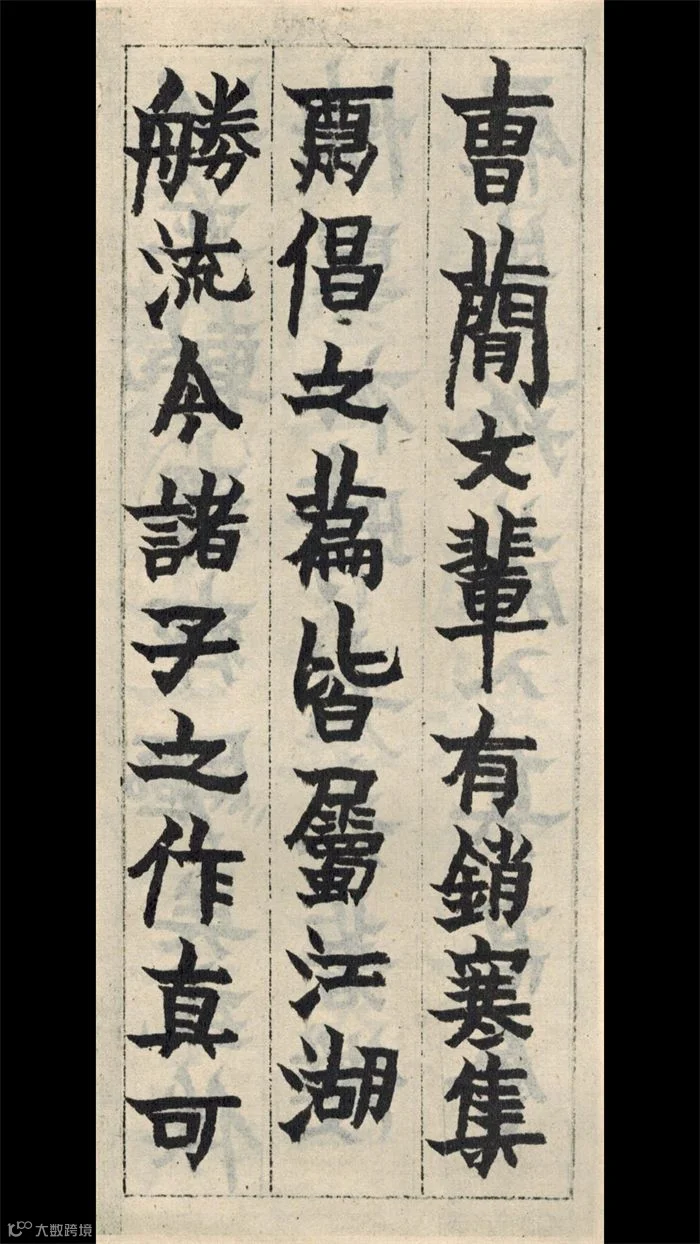 曹蕳女輩有銷寒集
倡之篇皆屬江湖
勝流今諸子之作真可
大数跨境